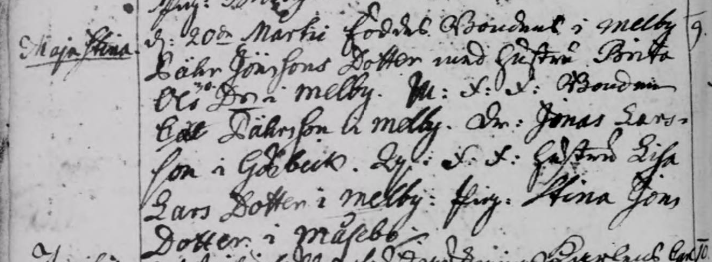 Maja Stina. d: 20de Martii föddes Bondens i Melby
Pähr Jönssons Dotter med hustru Brita
Ols Dr i Melby. M: S: S: Bonden
Pährsson i Melby. Dr: Jonas Lars-
son i Q: S: S: hustru Lisa
Lars Dotter i Melby. Pig: Stina Jöns
Dotter i Måsebo.